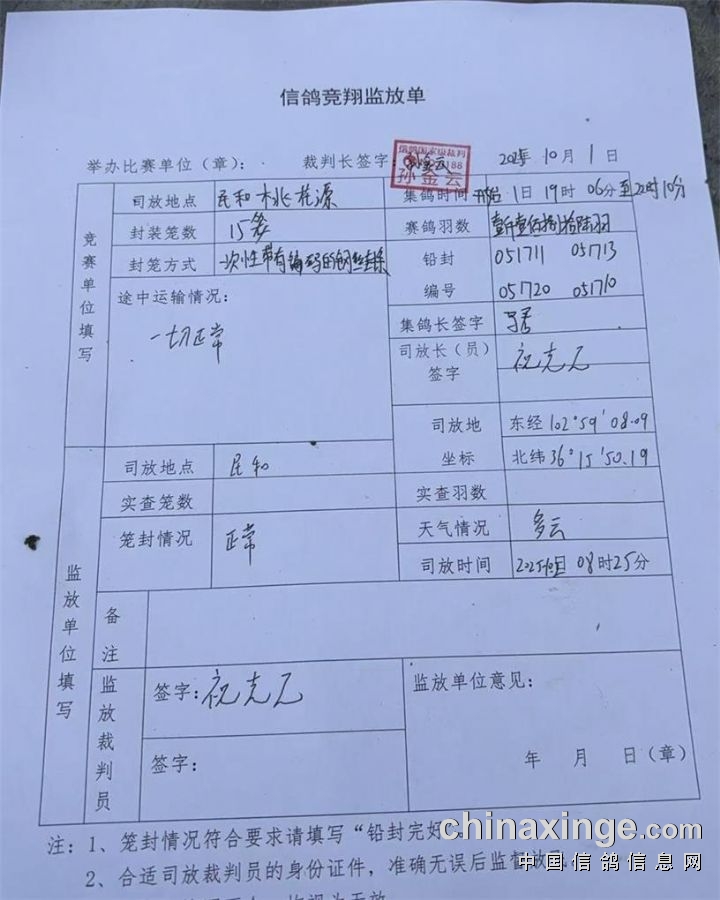 信鸽竞翔监放单
举办比赛单位（章）： 裁判长签字： 2025年10月1日
信鸽国家级裁判
孙金云
竞赛单位填写
司放地点 民和桃花源 集鸽时间 1日19时06分至22时10分
封装笼数 15笼 赛鸽羽数
封笼方式 一次性带有编码的钢丝封条 铅封编号 051711 051713
051720 051710
途中运输情况：
一切正常
集鸽长签字
司放长（员）签字 祝克元
司放地坐标 东经102°59′08.09
北纬36°15′50.19
监放单位填写
司放地点 民和
实查笼数 实查羽数
笼封情况 正常 天气情况 多云
司放时间 08时25分
备注
监放裁判员
签字：祝克元 监放单位意见：
签字： 年 月 日（章）
注：1、笼封情况符合要求请填写“铅封完好
2、合适司放裁判员的身份证件，准确无误后监督放飞
chinaxinge.com
中国信鸽信息网